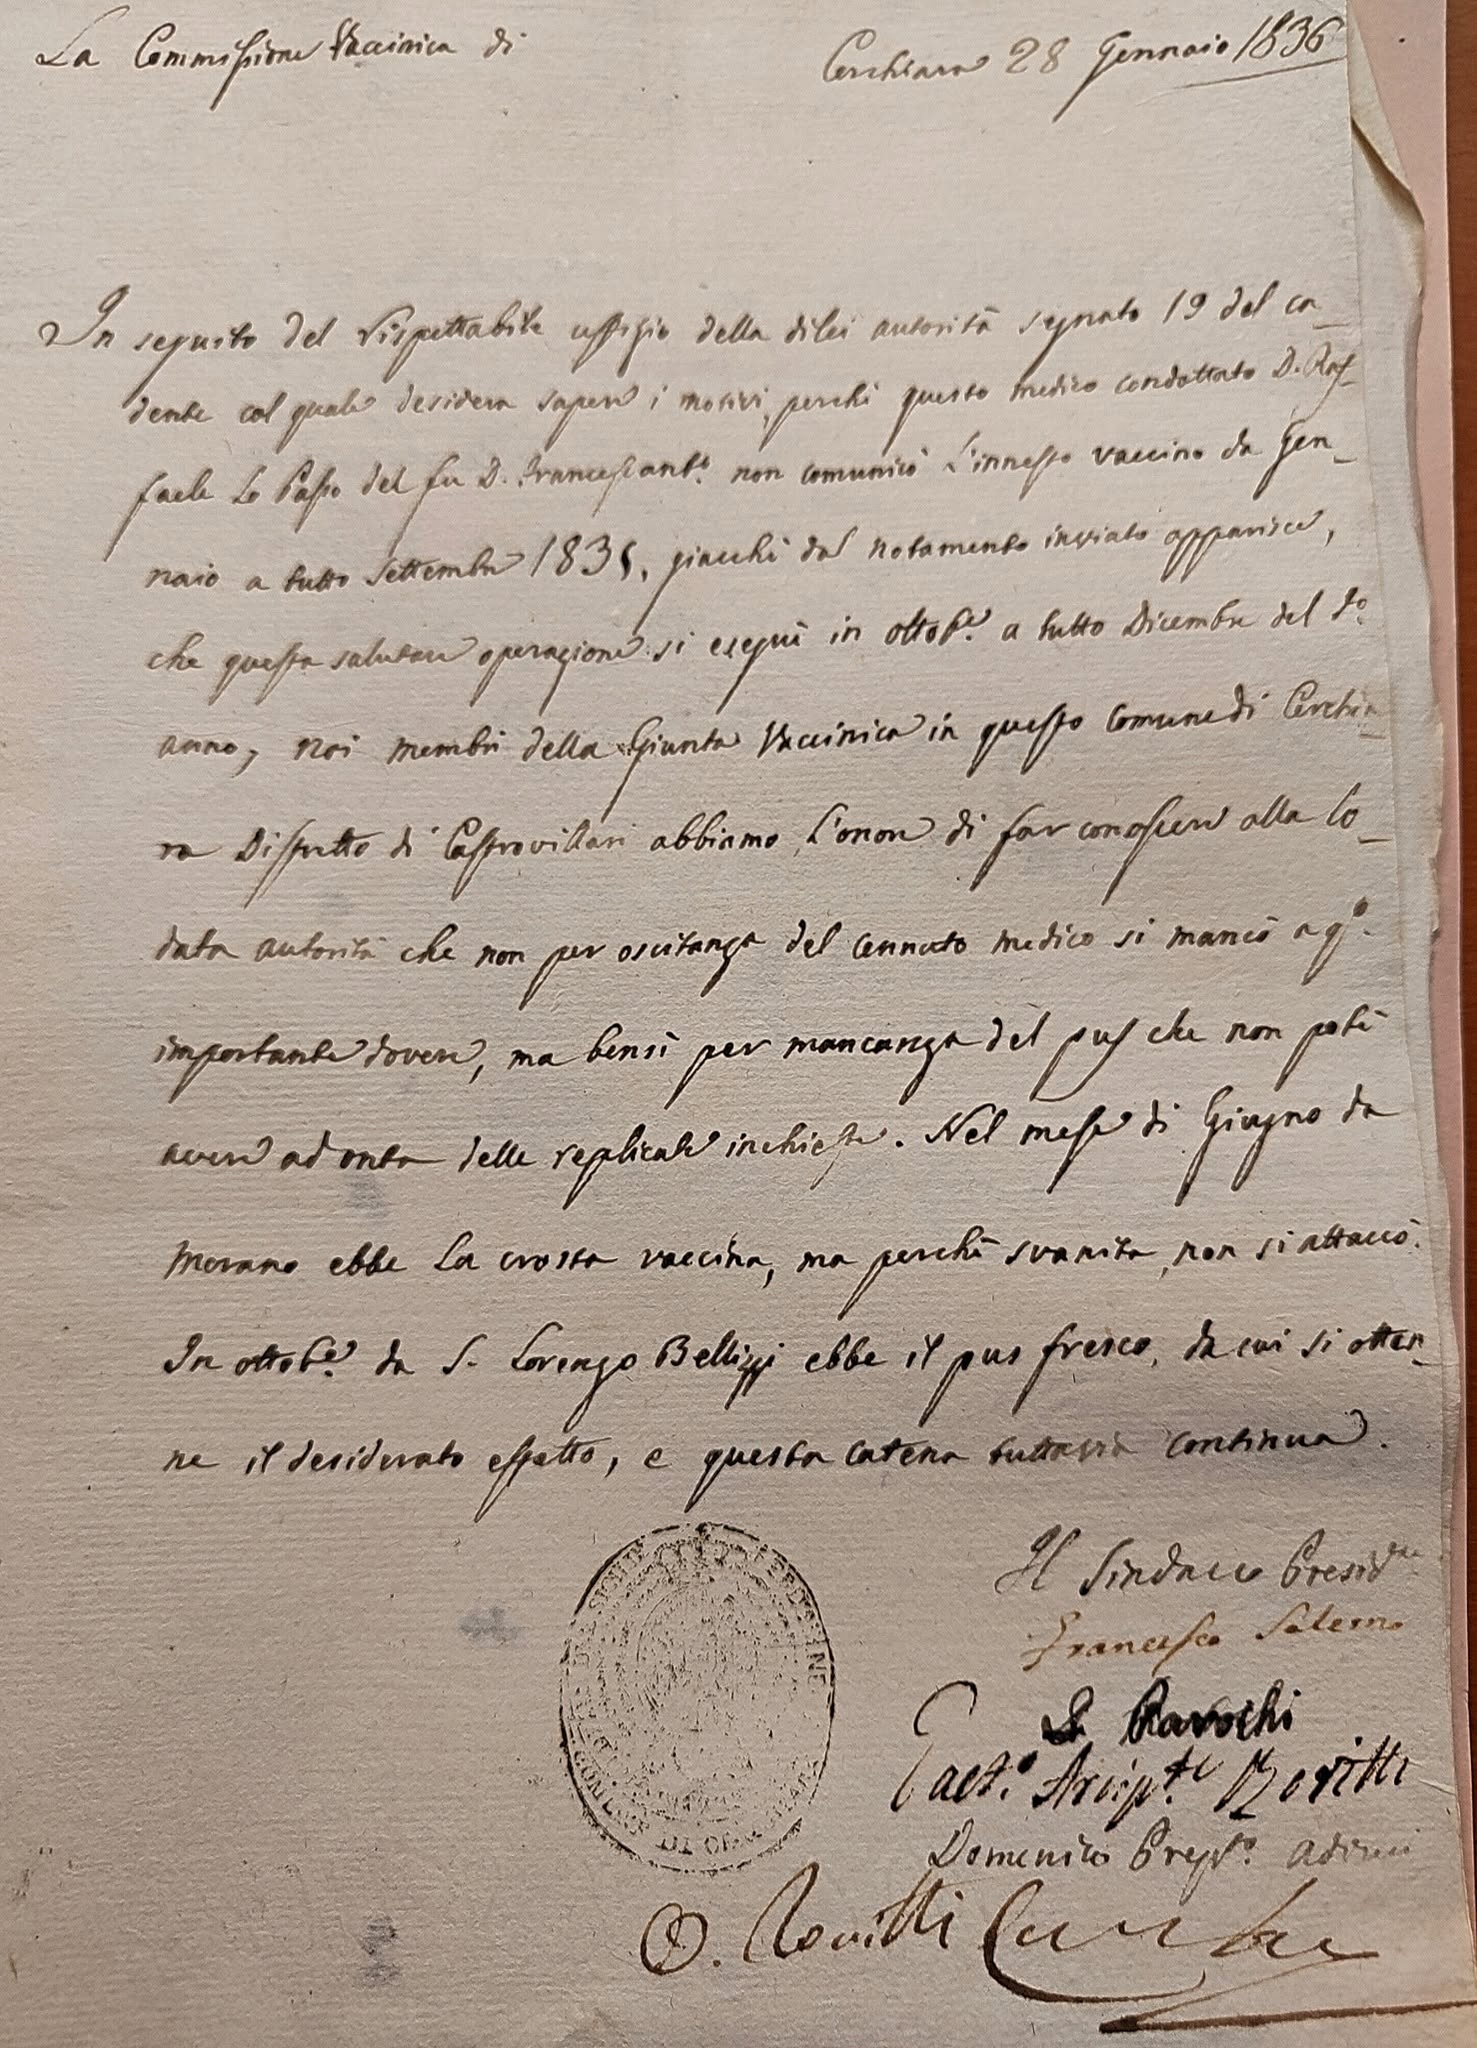 La Commissione Vaccinica di
Cerchiara 28 Gennaio 1836
In seguito del rispettabile uffizio della dilei autorità segnato 19 del ca_
dente col quale desidera sapere i motivi, perchè questo medico condottato D. Raf_
faele Lo Passo del fu D. Francescant.º non comunicò l'innesto vaccino da Gen_
naio a tutto Settembre 1835, giacchè dal notamento inviato apparisce,
che questa salutare operazione si eseguì in ottob.e a tutto Dicembre del d.º
anno, noi membri della Giunta Vaccinica in questo comune di Cerchia_
ra Distretto di Castrovillari abbiamo l'onore di far conoscere alla lo_
data autorità che non per oscitanza del cennato medico si mancò a q.º
importante dovere, ma bensì per mancanza del pus che non potè
avere ad onta delle replicate inchieste. Nel mese di Giugno da
Morano ebbe la crosta vaccina, ma perchè svanita, non si attaccò.
In ottob.e da S. Lorenzo Bellizzi ebbe il pus fresco, da cui si otten_
ne il desiderato effetto, e questa catena tuttavia continua.
Il Sindaco Presid.te
Francesco Salerno
I Parochi
Gaet.º Arcip.te Rovitti
Domenico
D. Rovitti
DI